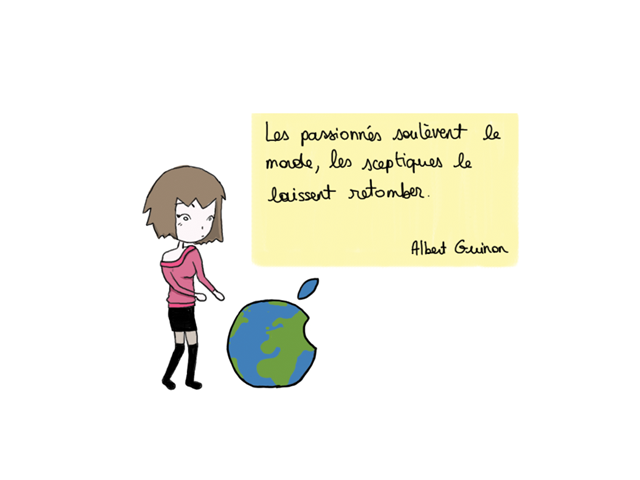 Les passionnés soulèvent le
monde, les sceptiques le
laissent retomber.
Albert Guinon